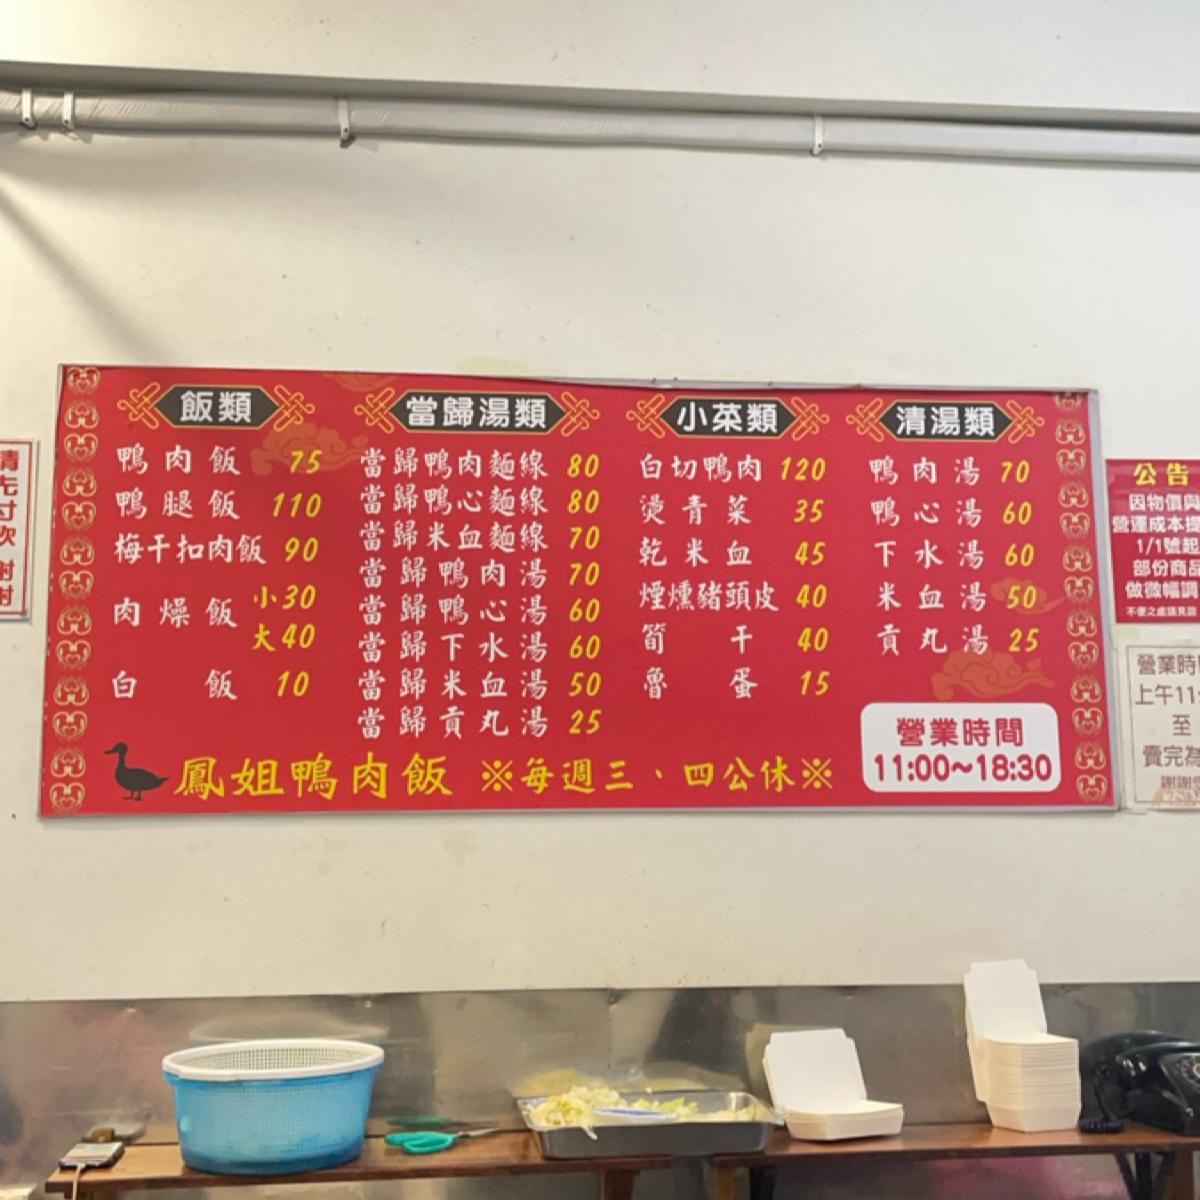 飯類
鴨肉飯 75
鴨腿飯 110
梅干扣肉飯 90
肉燥飯 小30
大40
白飯 10
當歸湯類
當歸鴨肉麵線 80
當歸鴨心麵線 80
當歸米血麵線 70
當歸鴨肉湯 70
當歸鴨心湯 60
當歸下水湯 60
當歸米血湯 50
當歸貢丸湯 25
小菜類
白切鴨肉 120
燙青菜 35
乾米血 45
煙燻豬頭皮 40
筍干 40
魯蛋 15
清湯類
鴨肉湯 70
鴨心湯 60
下水湯 60
米血湯 50
貢丸湯 25
營業時間
11:00~18:30
鳳姐鴨肉飯 ※每週三、四公休※
公告
因物價與
營運成本
1/1號起
部份商品
做微幅調
營業時間
上午11
至
賣完為
謝謝